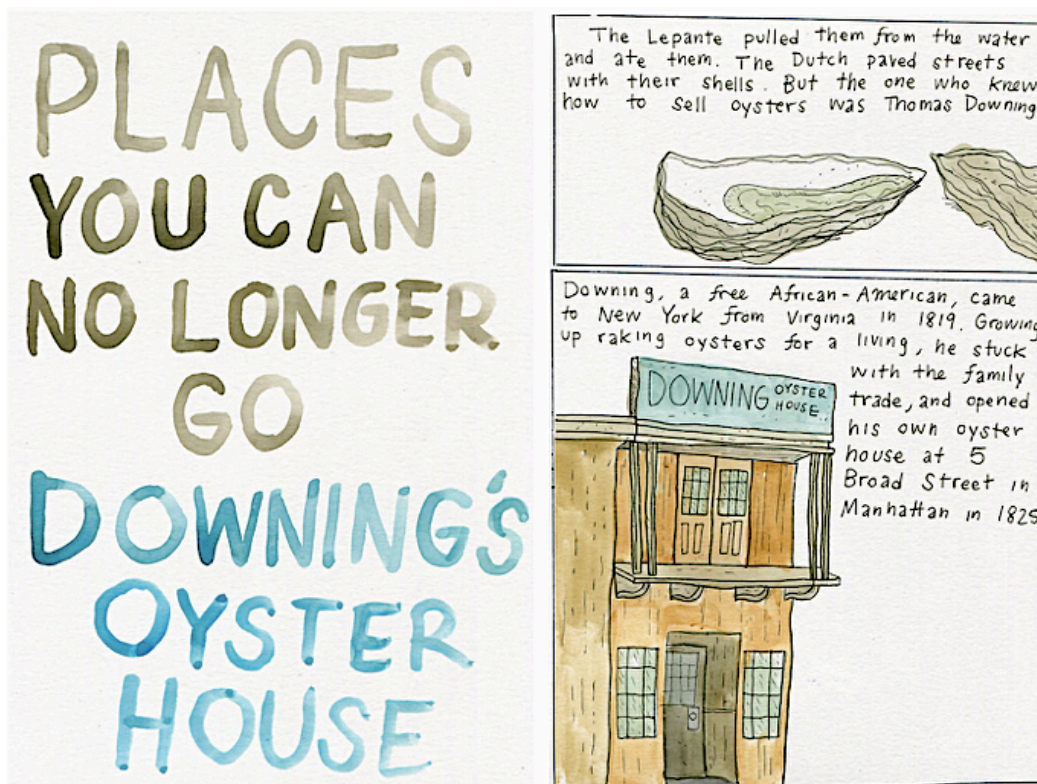 PLACES
YOU CAN
NO LONGER
GO
DOWNING'S
OYSTER
HOUSE
The Lepante pulled them from the water
and ate them. The Dutch paved streets
with their shells. But the one who knew
how to sell oysters was Thomas Downing
Downing, a free African-American, came
to New York from Virginia in 1819. Growing
up raking oysters for a living, he stuck
with the family
trade, and opened
his own oyster
house at 5
Broad Street in
Manhattan in 1825
DOWNING OYSTER
HOUSE